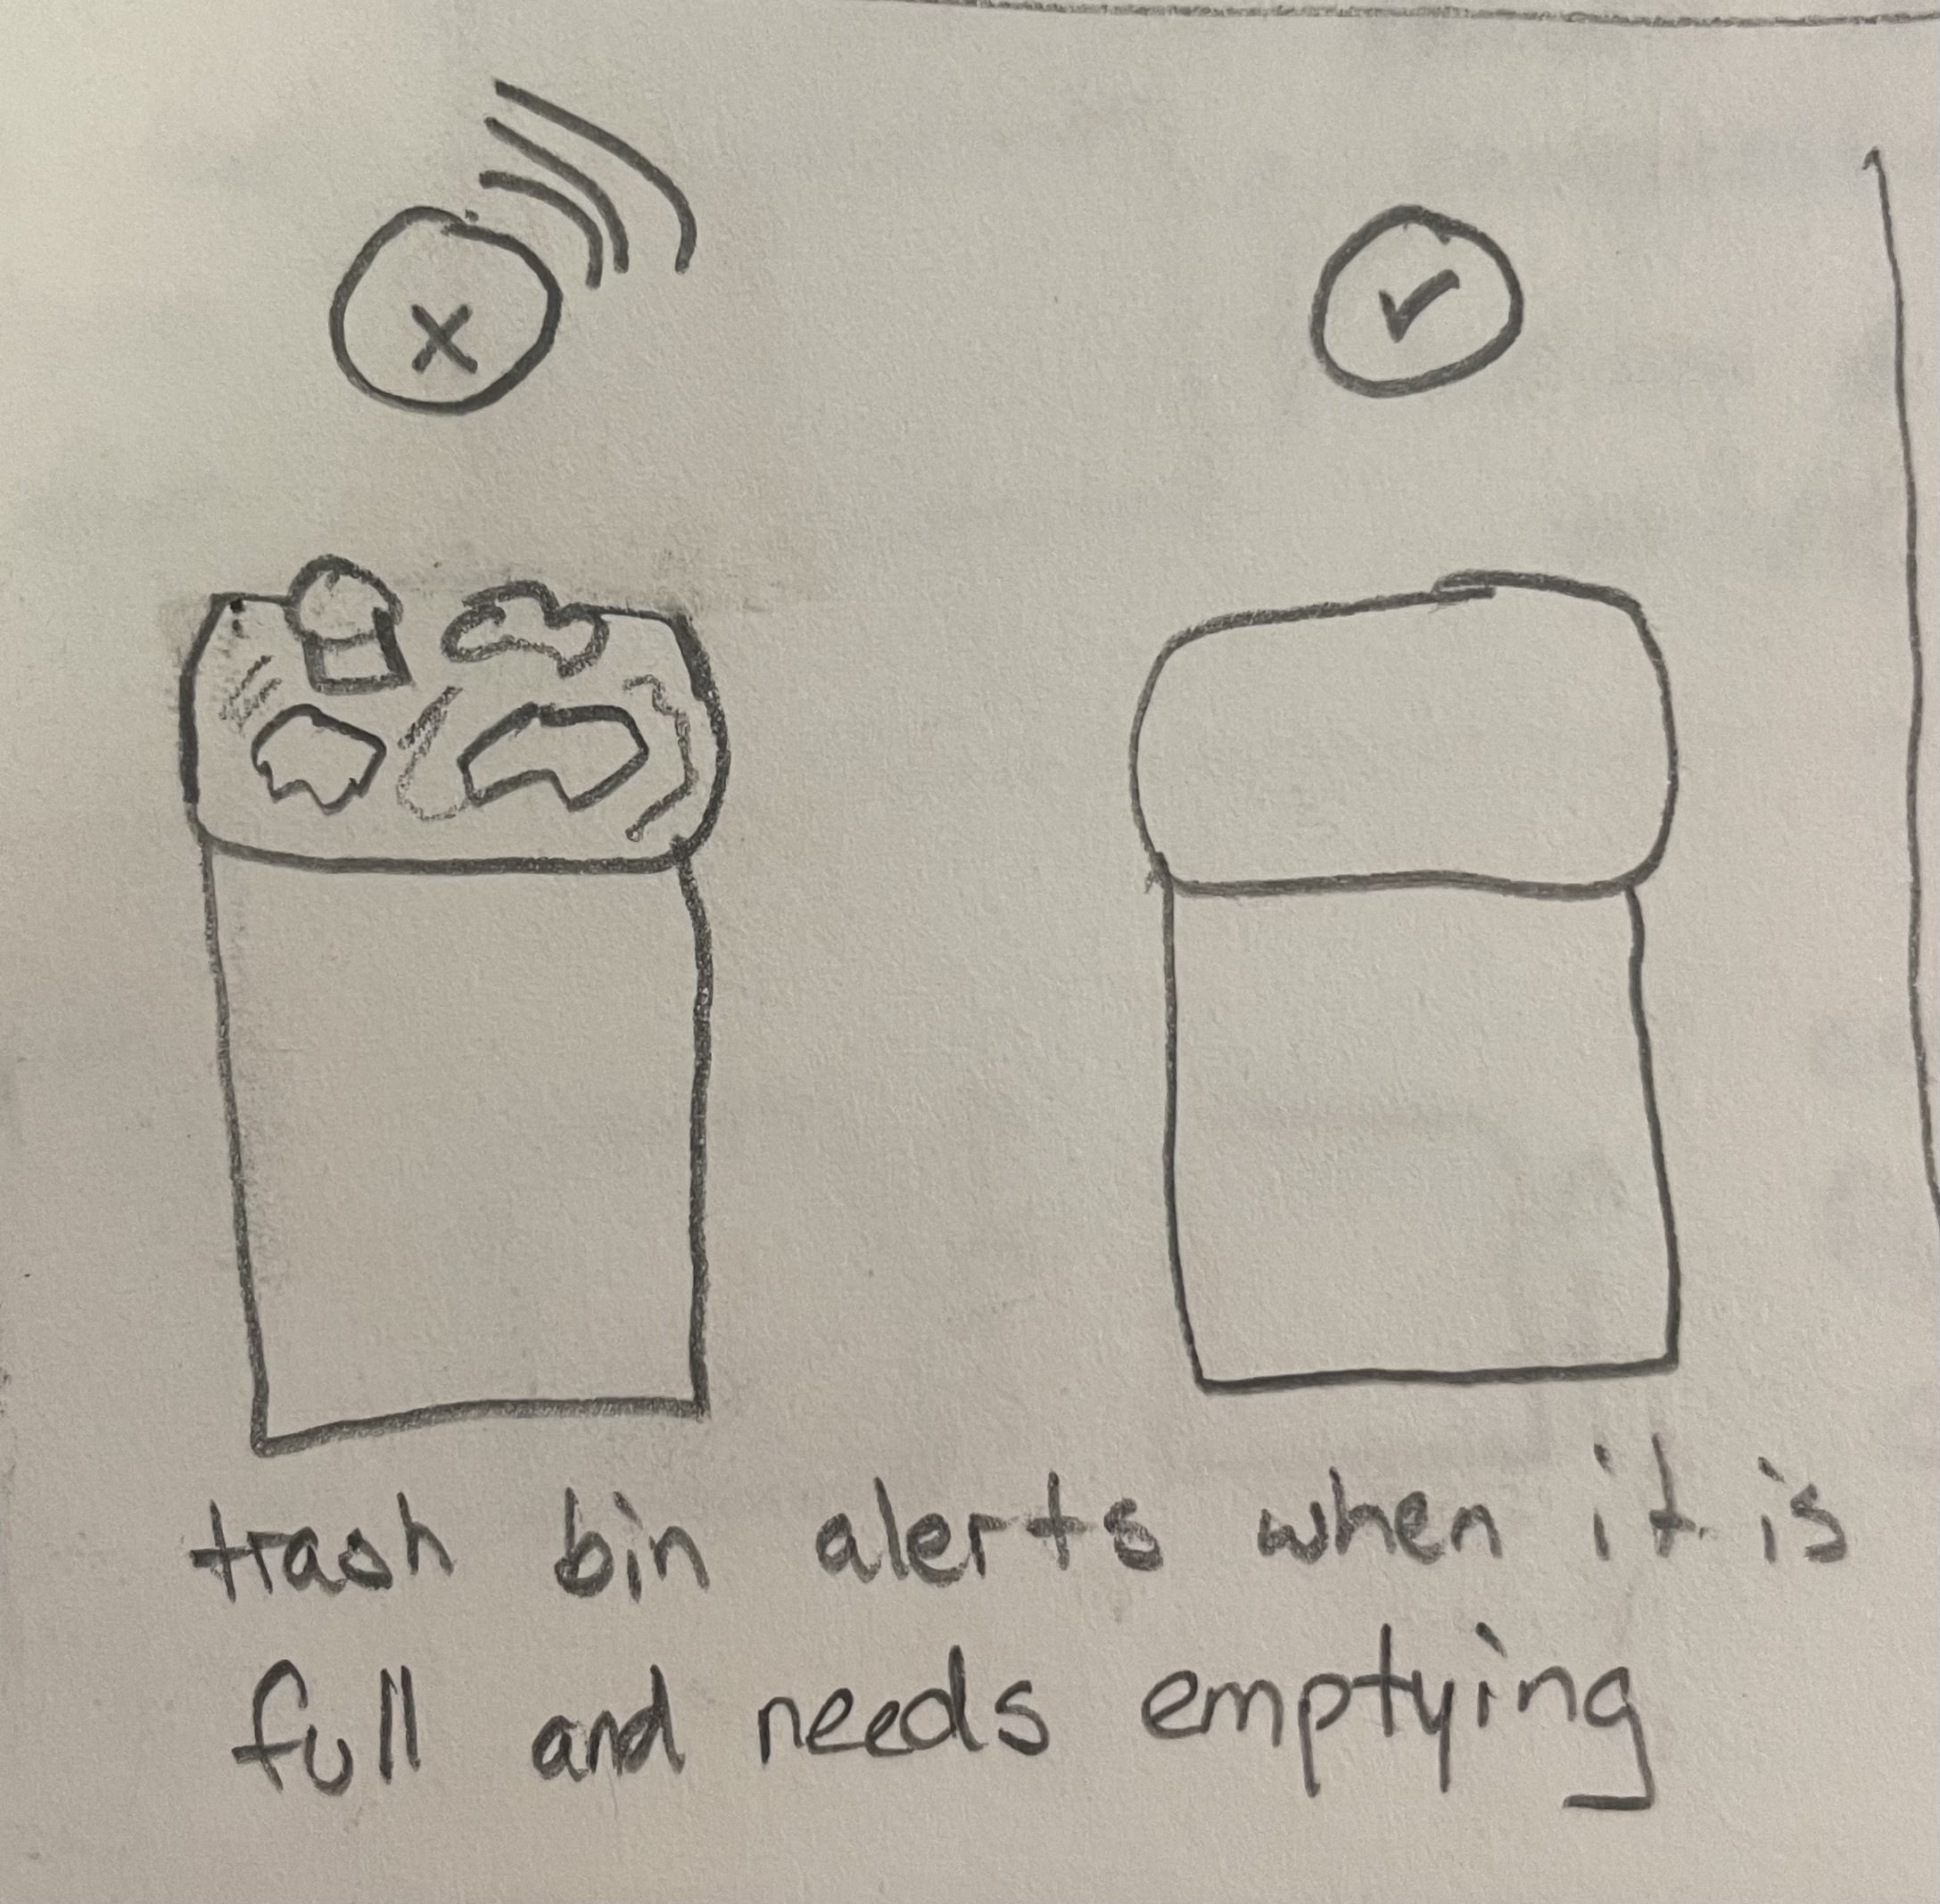 x
✓
trash bin alerts when it is
full and needs emptying